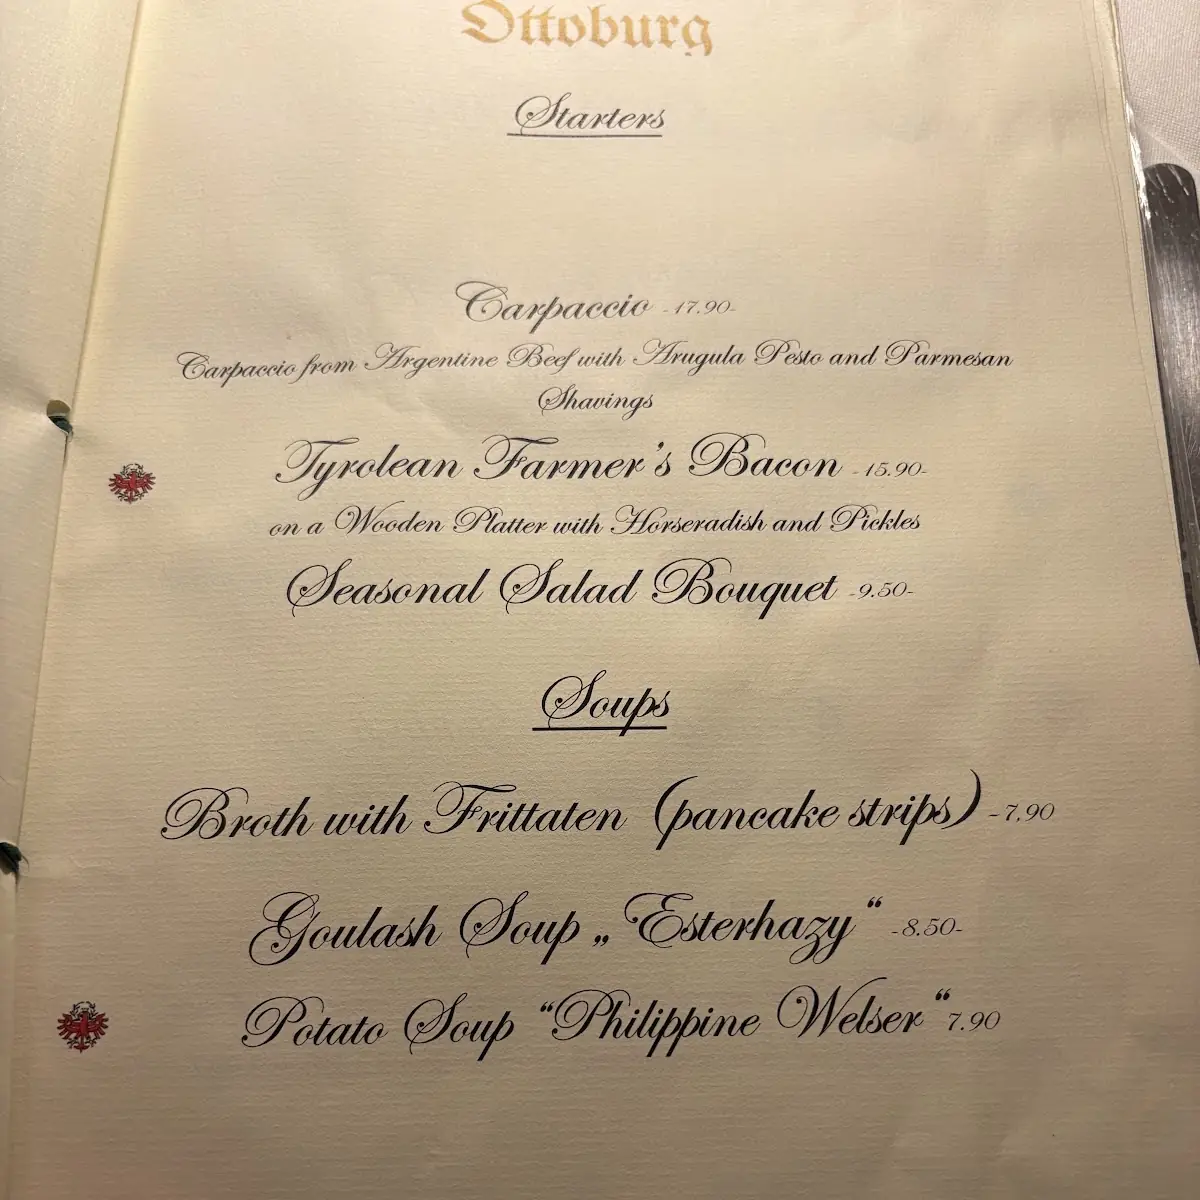 Ottoburg
Starters
Carpaccio -17.90-
Carpaccio from Argentine Beef with Arugula Pesto and Parmesan
Shavings
Tyrolean Farmer's Bacon -15.90-
on a Wooden Platter with Horseradish and Pickles
Seasonal Salad Bouquet -9.50-
Soups
Broth with Frittaten (pancake strips) -7.90
Goulash Soup „Esterhazy“ -8.50-
Potato Soup “Philippine Welser“ 7.90